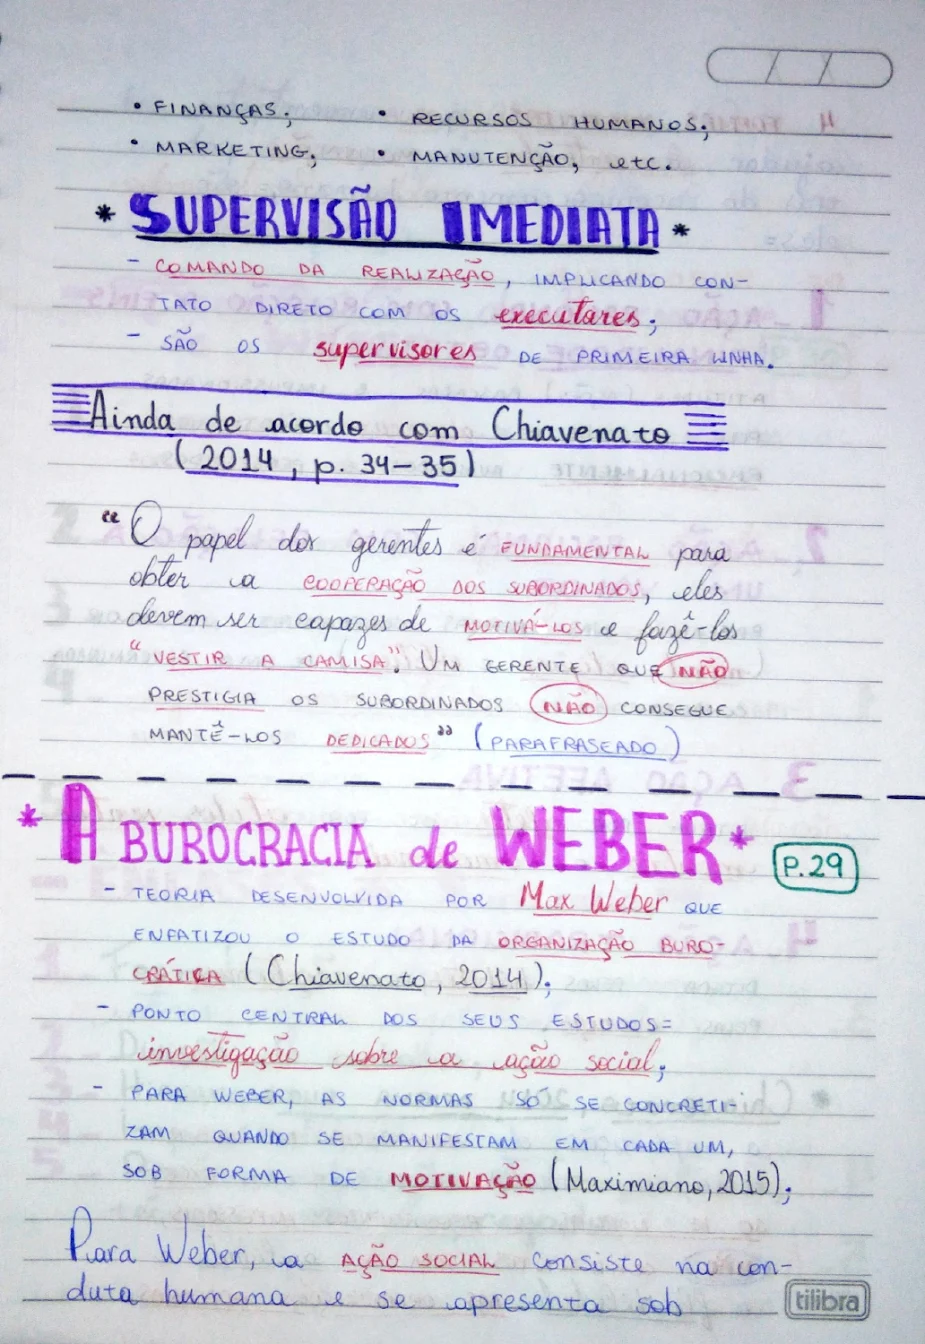 • FINANÇAS; • RECURSOS HUMANOS;
• MARKETING; • MANUTENÇÃO, etc.
* SUPERVISÃO IMEDIATA *
- COMANDO DA REALIZAÇÃO, IMPLICANDO CON-
TATO DIRETO COM OS executares;
- SÃO OS supervisores DE PRIMEIRA LINHA.
Ainda de acordo com Chiavenato
(2014, p. 34-35)
"O papel dos gerentes é FUNDAMENTAL para
obter a COOPERAÇÃO DOS SUBORDINADOS, eles
devem ser capazes de MOTIVÁ-LOS e fazê-los
"VESTIR A CAMISA". UM GERENTE QUE NÃO
PRESTIGIA OS SUBORDINADOS NÃO CONSEGUE
MANTÊ-LOS DEDICADOS" (PARAFRASEADO)
* A BUROCRACIA de WEBER * P.29
- TEORIA DESENVOLVIDA POR Max Weber QUE
ENFATIZOU O ESTUDO DA ORGANIZAÇÃO BURO-
CRÁTICA (Chiavenato, 2014);
- PONTO CENTRAL DOS SEUS ESTUDOS=
investigação sobre a ação social;
- PARA WEBER, AS NORMAS SÓ SE CONCRETI-
ZAM QUANDO SE MANIFESTAM EM CADA UM,
SOB FORMA DE MOTIVAÇÃO (Maximiano, 2015);
Para Weber, a AÇÃO SOCIAL consiste na con-
duta humana e se apresenta sob
tilibra